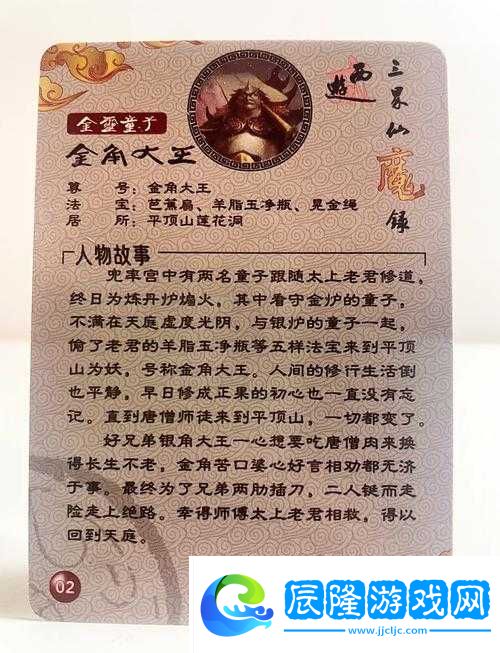 西遊
三界仙魔录
金灵童子
金角大王
尊号：金角大王
法宝：芭蕉扇、羊脂玉净瓶、晃金绳
居所：平顶山莲花洞
人物故事
兜率宫中有两名童子跟随太上老君修道，
终日为炼丹炉煽火，其中看守金炉的童子，
不满在天庭虚度光阴，与银炉的童子一起，
偷了老君的羊脂玉净瓶等五样法宝来到平顶
山为妖，号称金角大王。人间的修行生活倒
也平静，早日修成正果的初心也一直没有忘
记。直到唐僧师徒来到平顶山，一切都变了。
好兄弟银角大王一心想要吃唐僧肉来换
得长生不老，金角苦口婆心好言相劝都无济
于事。最终为了兄弟两肋插刀，二人铤而走
险走上绝路。幸得师傅太上老君相救，得以
回到天庭。
02
辰隆游戏网
www.jjcljc.com